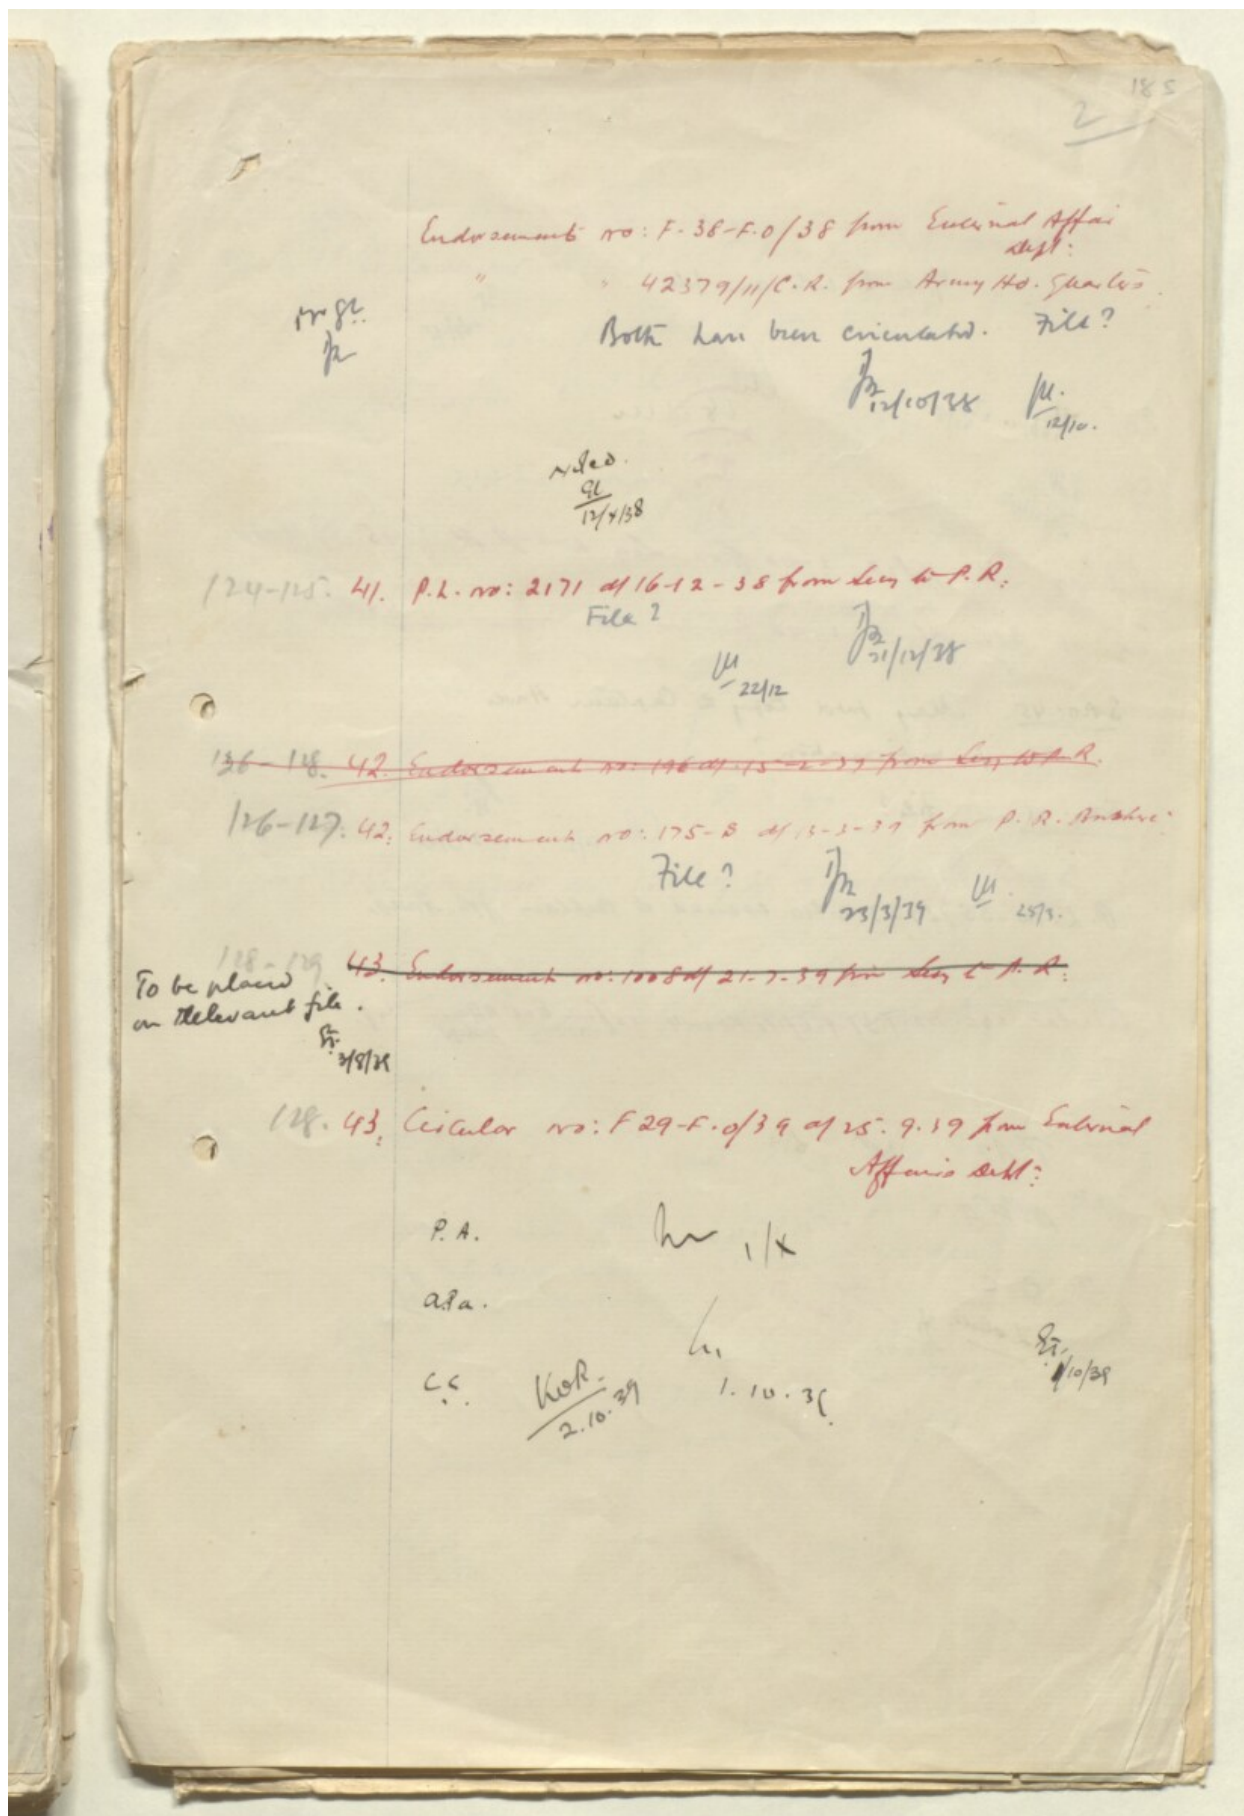 185
2
Endorsement no: F. 38-F.O/38 from External Affair
Dept:
" " 42379/11/C.R. from Army Hd. Quarters
Both have been circulated. File?
12/10/38
12/10.
Noted.
124-125. 41. P.L. no: 2171 d/ 16-12-38 from Secy to P.R:
File?
21/12/38
22/12
42. Endorsement no: 196 d/ 15-2-39 from Secy to P.R.
126-127. 42. Endorsement no: 175-S d/ 13-3-39 from P.R. Bushire
File?
23/3/39
25/3.
128-129 43. Endorsement no: 1008 d/ 21-7-39 from Secy to P.R:
To be placed
on relevant file.
3/8/39
128. 43. Circular no: F 29-F.O/39 d/ 25.9.39 from External
Affairs Dept:
P.A.
1/X
A.P.A.
C.C.
1.10.39
2.10.39
1/10/39